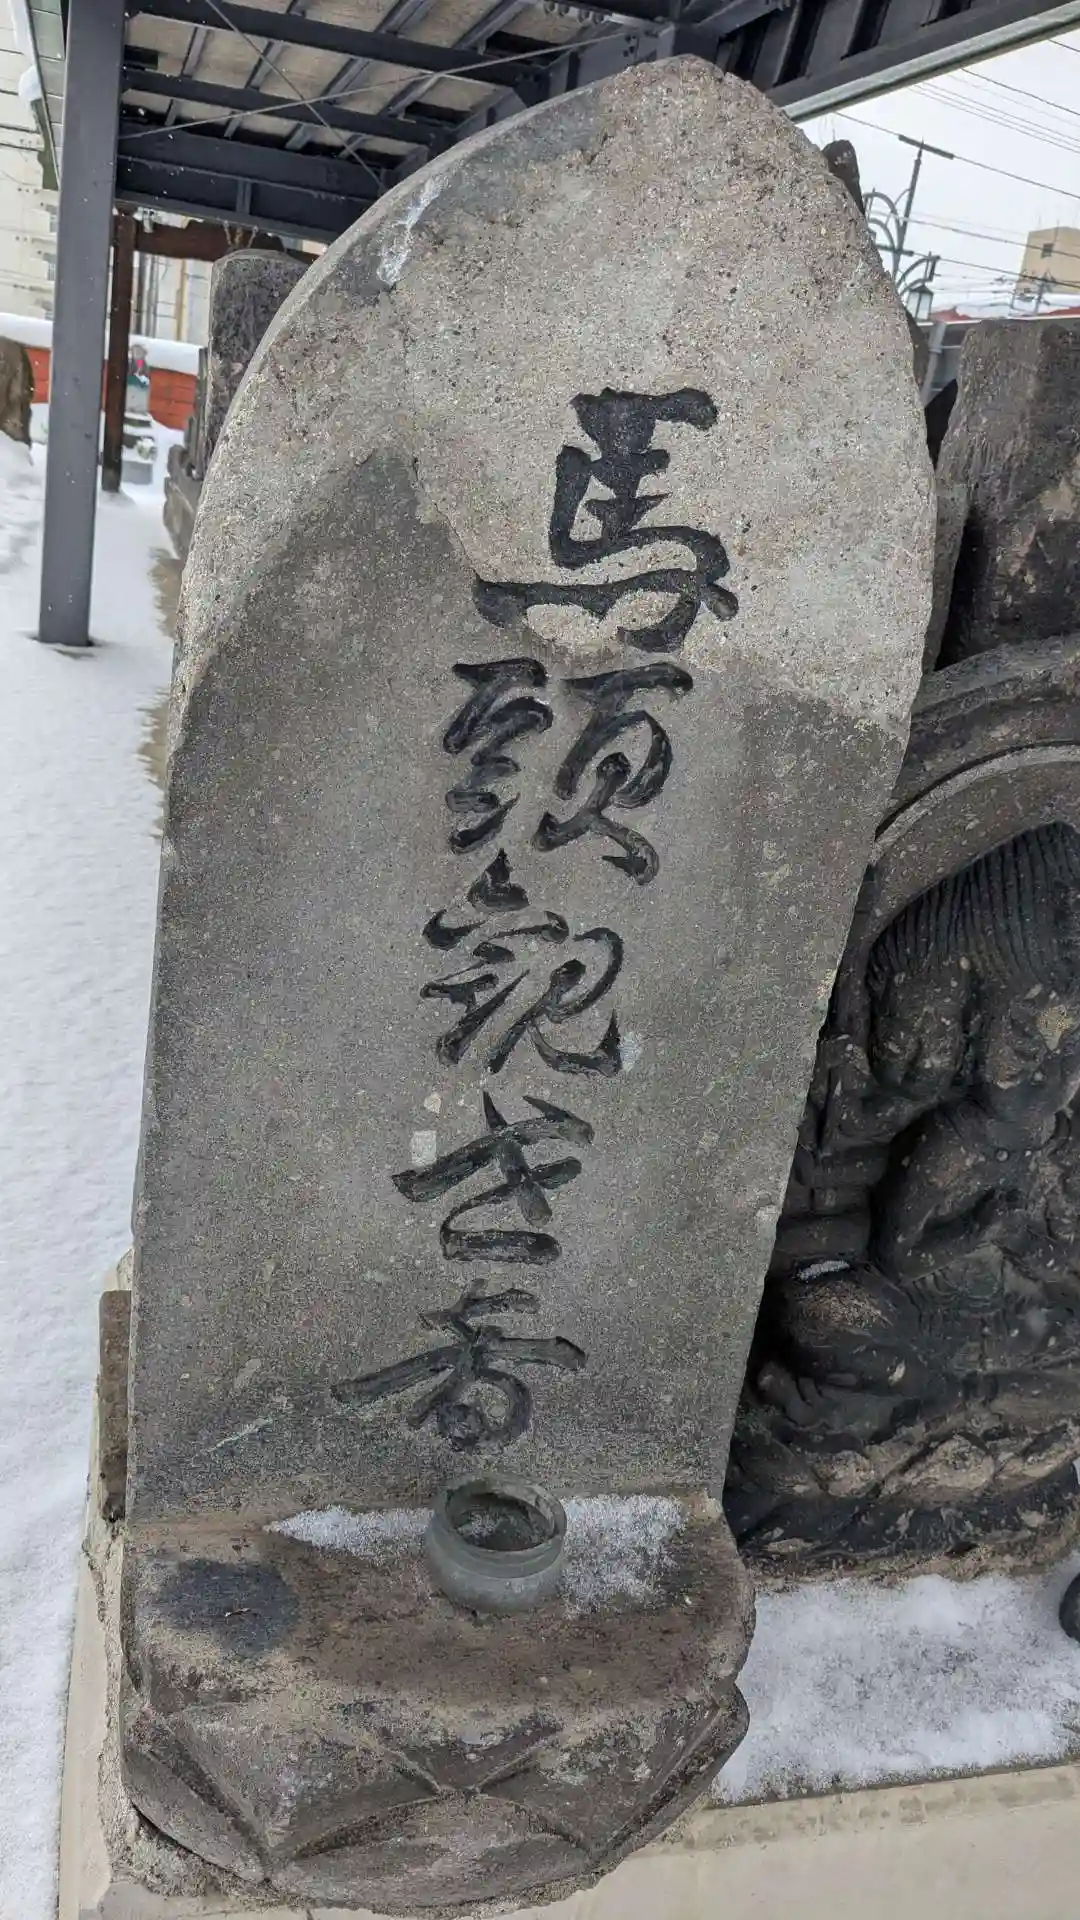 馬頭観世音